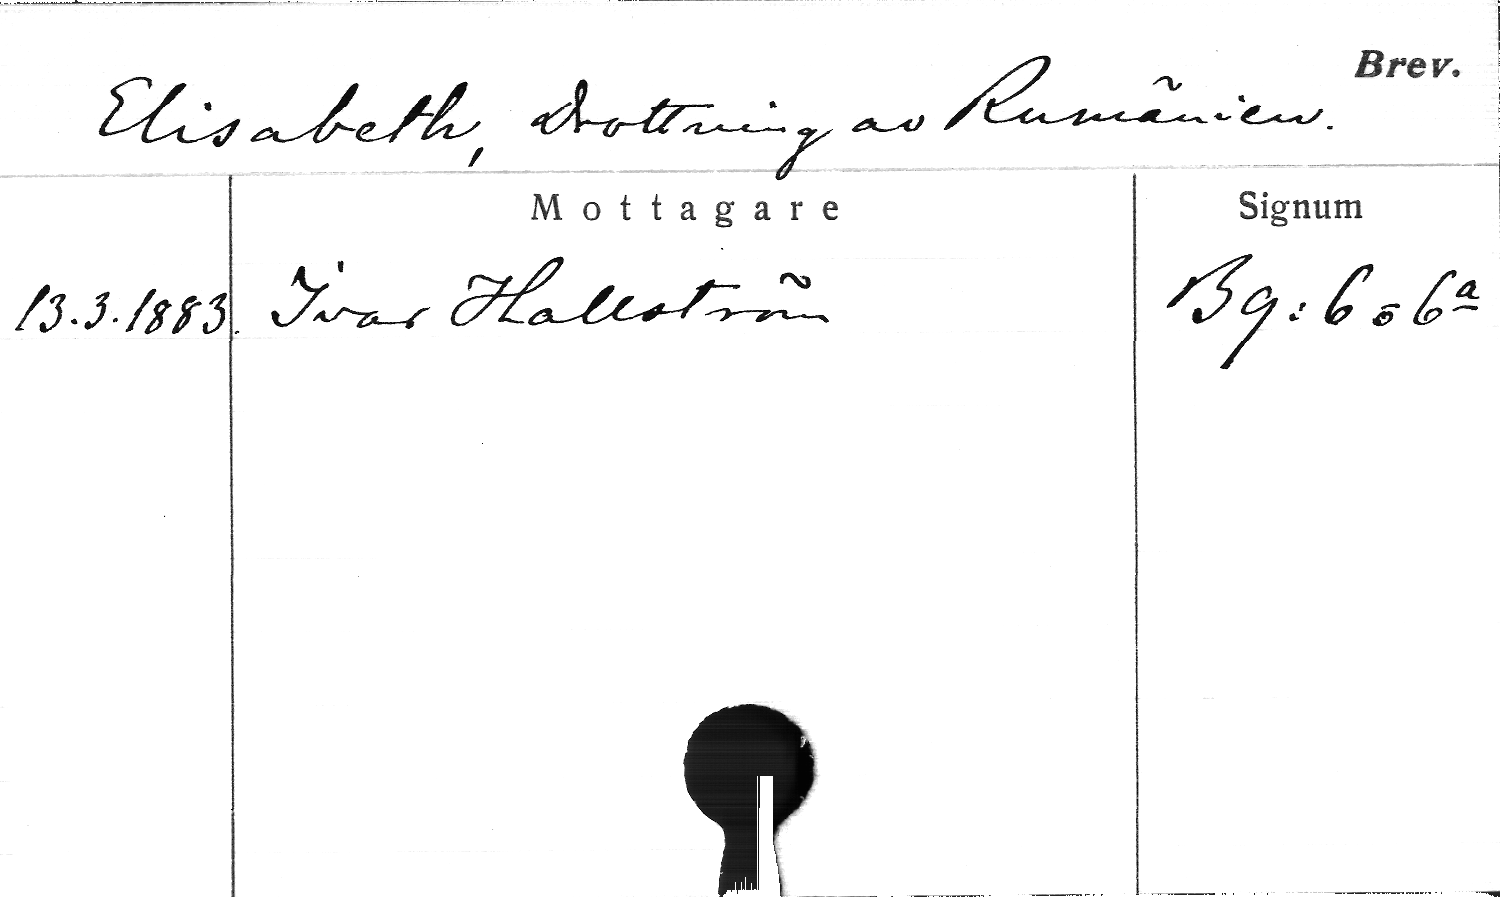 Brev.
Elisabeth, Drottning av Rumänien.
Mottagare Signum
13.3.1883. Ivar Hallström Bq: 6 o 6a